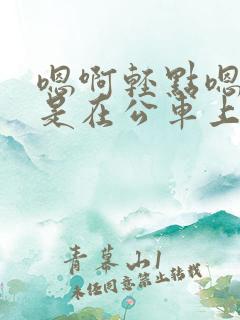 嗯啊輕點嗯
是在公車上
青幕山1
未经同意禁止转载